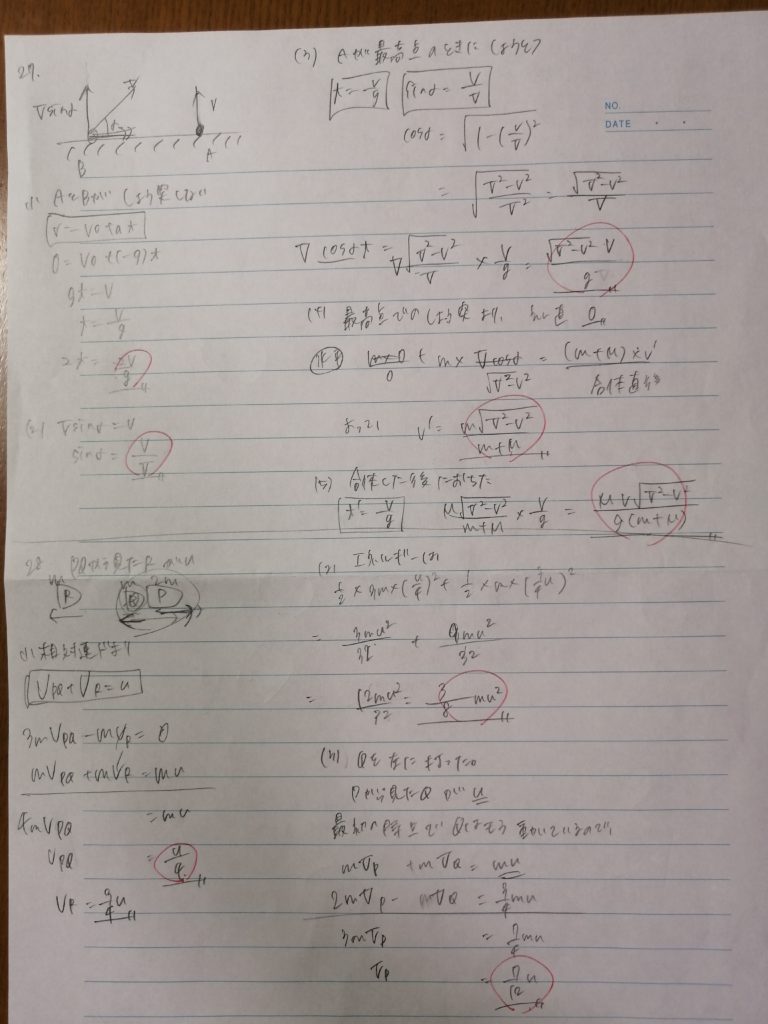 27.
Vsinα
V
α
v
B
A
(1) AとBがしょう突しない
v = v₀ + at
0 = v₀ + (-g)t
gt = v
t = v/g
2t = 2v/g
(2) Vsinα = v
sinα = v/V
(3) Aが最高点のときにしょうとつ
t = v/g
sinα = v/V
cosα = √(1-(v/V)²)
= √((V²-v²)/V²) = √(V²-v²)/V
V cosα t = V √(V²-v²)/V × v/g = √(V²-v²) v/g
(4) 最高点でのしょう突より、 0
m×0 + m × Vcosα = (m+M) × v'
0
√(V²-v²)
合体直後
よって、 v' = m√(V²-v²)/(m+M)
(5) 合体した後におちた
t' = v/g
M√(V²-v²)/(m+M) × v/g = Mv√(V²-v²)/(g(m+M))
28
m
P
m
2m
P
(1) 相対速度より
V_PQ + V_P = u
3mV_PQ - mV_P = 0
mV_PQ + mV_P = mu
4mV_PQ = mu
V_PQ = u/4
V_P = 3/4 u
(2) エネルギー
1/2 × 3m × (u/4)² + 1/2 × m × (3/4 u)²
= 3mu²/32 + 9mu²/32
= 12mu²/32 = 3/8 mu²
(3) Qを
Pから見たQが u
mV_P + mV_Q = mu
2mV_P - mV_Q = 3/4 mu
3mV_P = 7/4 mu
V_P = 7/12 u
NO.
DATE ・ ・